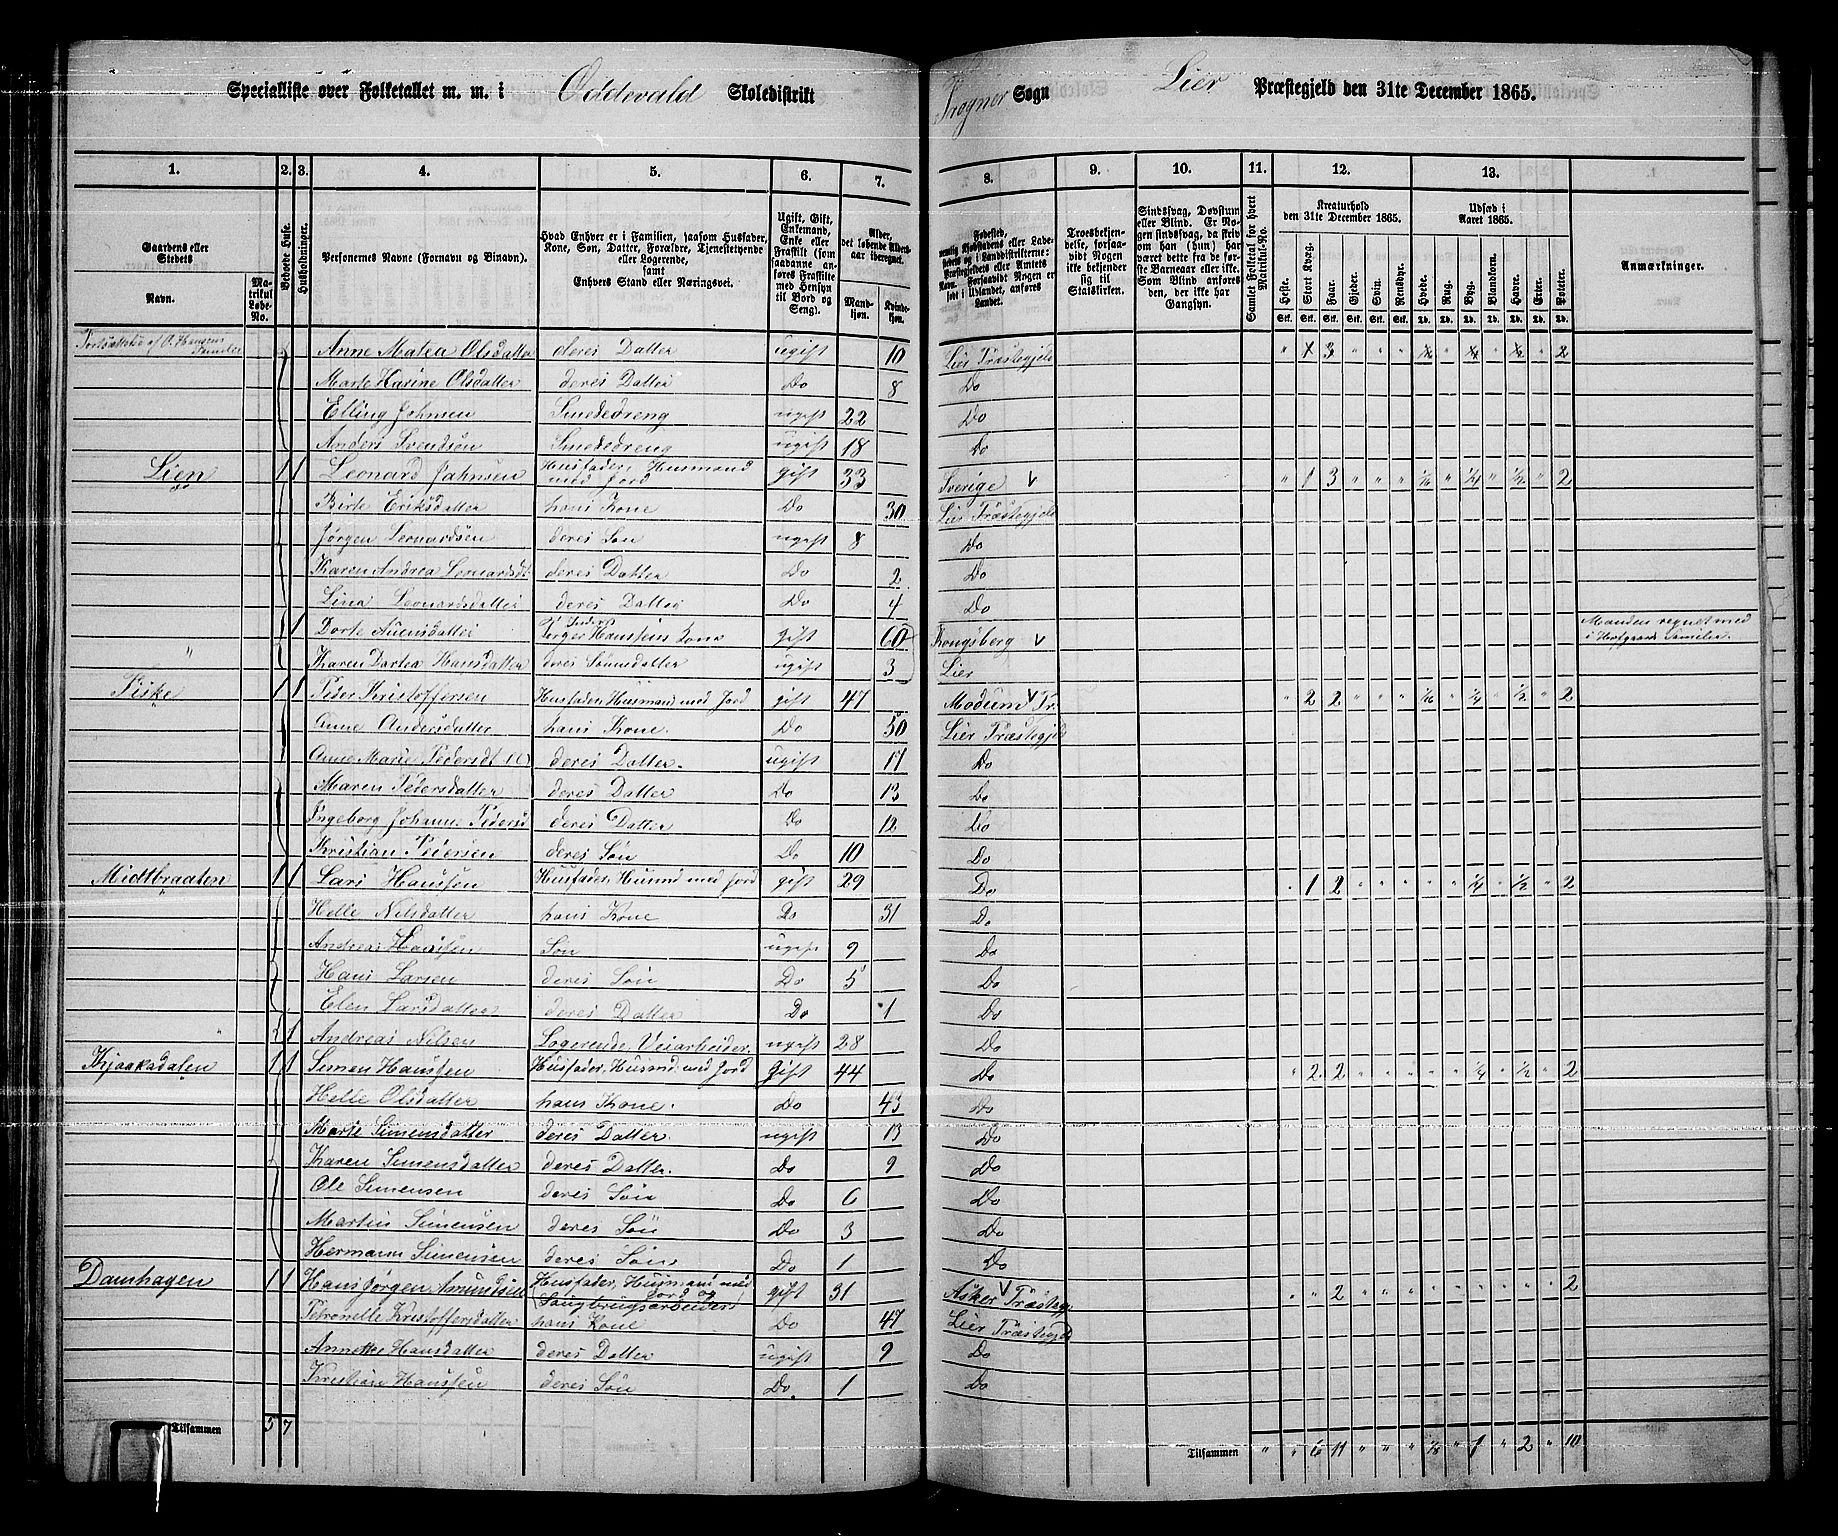 Specialliste over Folketallet m. m. i Oddevald Skoledistrikt Frogner Sogn Lier Præstegjeld den 31te December 1865.
1. 2. 3. 4. 5. 6. 7. 8. 9. 10. 11. 12. 13.
Gaardens eller Stedets Navn.
Matrikul Løbe-No.
Beboede Huse.
Husholdninger.
Personernes Navne (Fornavn og Binavn).
Hvad Enhver er i Familien, saasom Husfader, Kone, Søn, Datter, Forældre, Tjenestetyende eller Logerende, samt Enhvers Stand eller Næringsvei.
Ugift, Gift, Enkemand, Enke eller Fraskilt (som saadanne anføres Fraskilte med Hensyn til Bord og Seng).
Alder, det løbende Alders-aar iberegnet.
Mandkjøn. Kvindekjøn.
Fødested, nemlig Kjøbstadens eller Ladestedets eller i Landdistrikterne: Præstegjeldets eller Amtets Navn. Forsaavidt Nogen er født i Udlandet, anføres Landet.
Troesbekjendelse, forsaavidt Nogen ikke bekjender sig til Statskirken.
Sindssvag, Døvstum eller Blind. Er Nogen sindssvag, da skrives om han (hun) har været dette fra de første Barneaar eller ikke. Som Blind anføres den, der ikke har Gangsyn.
Samlet Folketal for hvert Matrikul-No.
Kreaturhold den 31te December 1865.
Heste. Stort Kvæg. Faar. Gjeder. Svin. Rensdyr.
Udsæd i Aaret 1865.
Hvede. Rug. Byg. Blandkorn. Havre. Erter. Poteter.
Anmærkninger.
Fortsættelse af O. Hansens Familie Anne Matea Olsdatter deres Datter ugift 10 Lier Præstegjeld " 1 3 " " " 1/4 " 1/2 " 2
Marte Karine Olsdatter deres Datter Do 8 Do
Elling Johnsen Smededreng ugift 22 Do
Anders Svendsøn Smededreng ugift 18 Do
Lien 1 1 Leonard Jahnsen Husfader, Husmand med Jord gift 33 Sverige " 1 3 " " " 1/16 " 1/4 " 1/2 " 2
Birte Eriksdatter hans Kone Do 30 Lier Præstegjeld
Jørgen Leonardsen deres Søn ugift 8 Do
Karen Andrea Leonardsdt deres Datter Do 2 Do
Lina Leonardsdatter deres Datter Do 4 Do
" 1 Dorte Auensdatter Hansens Kone gift 60 Kongsberg Manden regnet med i Familie
Karen Dortea Hansdatter deres Sønnedatter ugift 3 Lier
Fiske 1 1 Peder Kristoffersen Husfader Husmand med Jord gift 47 Modum Pr. " 2 2 " " " 1/16 " 1/4 " 1/2 " 2
Anne Andersdatter hans Kone Do 50 Lier Præstegjeld
Anne Marie Pedersdt deres Datter ugift 17 Do
Maren Pedersdatter deres Datter Do 13 Do
Ingeborg Johanne Pedersd deres Datter Do 12 Do
Kristian Pedersen deres Søn Do 10 Do
Midtbraaten 1 1 Lars Hanssen Husfader, Husmd med Jord gift 29 Do " 1 2 " " " " " 1/4 " 1/2 " 2
Helle Nilsdatter hans Kone Do 31 Do
Andreas Hanssen Søn ugift 9 Do
Hans Larsen deres Søn Do 5 Do
Elen Larsdatter deres Datter Do 1 Do
" 1 Andreas Nilsen Logerende, Veiarbeider ugift 28 Do
Kjaaksdalen 1 1 Simen Hanssen Husfader, Husmd med Jord gift 44 Do " 2 2 " " " " " 1/4 " 1/2 " 2
Helle Olsdatter hans Kone Do 43 Do
Marte Simensdatter deres Datter ugift 13 Do
Karen Simensdatter deres Datter Do 9 Do
Ole Simensen deres Søn Do 6 Do
Martin Simensen deres Søn Do 3 Do
Hermann Simensen deres Søn Do 1 Do
Damhagen 1 1 Hans Jørgen Amundsen Husfader, Husmand med Jord og (Saugbrugsarbeider) gift 31 Asker Præstegj. " " 2 " " " " " " " " " 2
Petronelle Kristoffersdatter hans Kone Do 47 Lier Præstegjd
Annette Hansdatter deres Datter ugift 9 Do
Kristian Hanssen deres Søn Do 1 Do
Tilsammen 5 7 Tilsammen " " 6 11 " " " 1/8 " 1 " 2 " 10